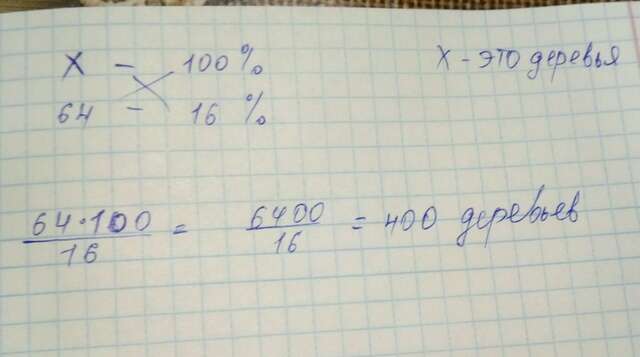 X - 100 % X - это деревья
64 - 16 %
64·100/16 = 6400/16 = 400 деревьев